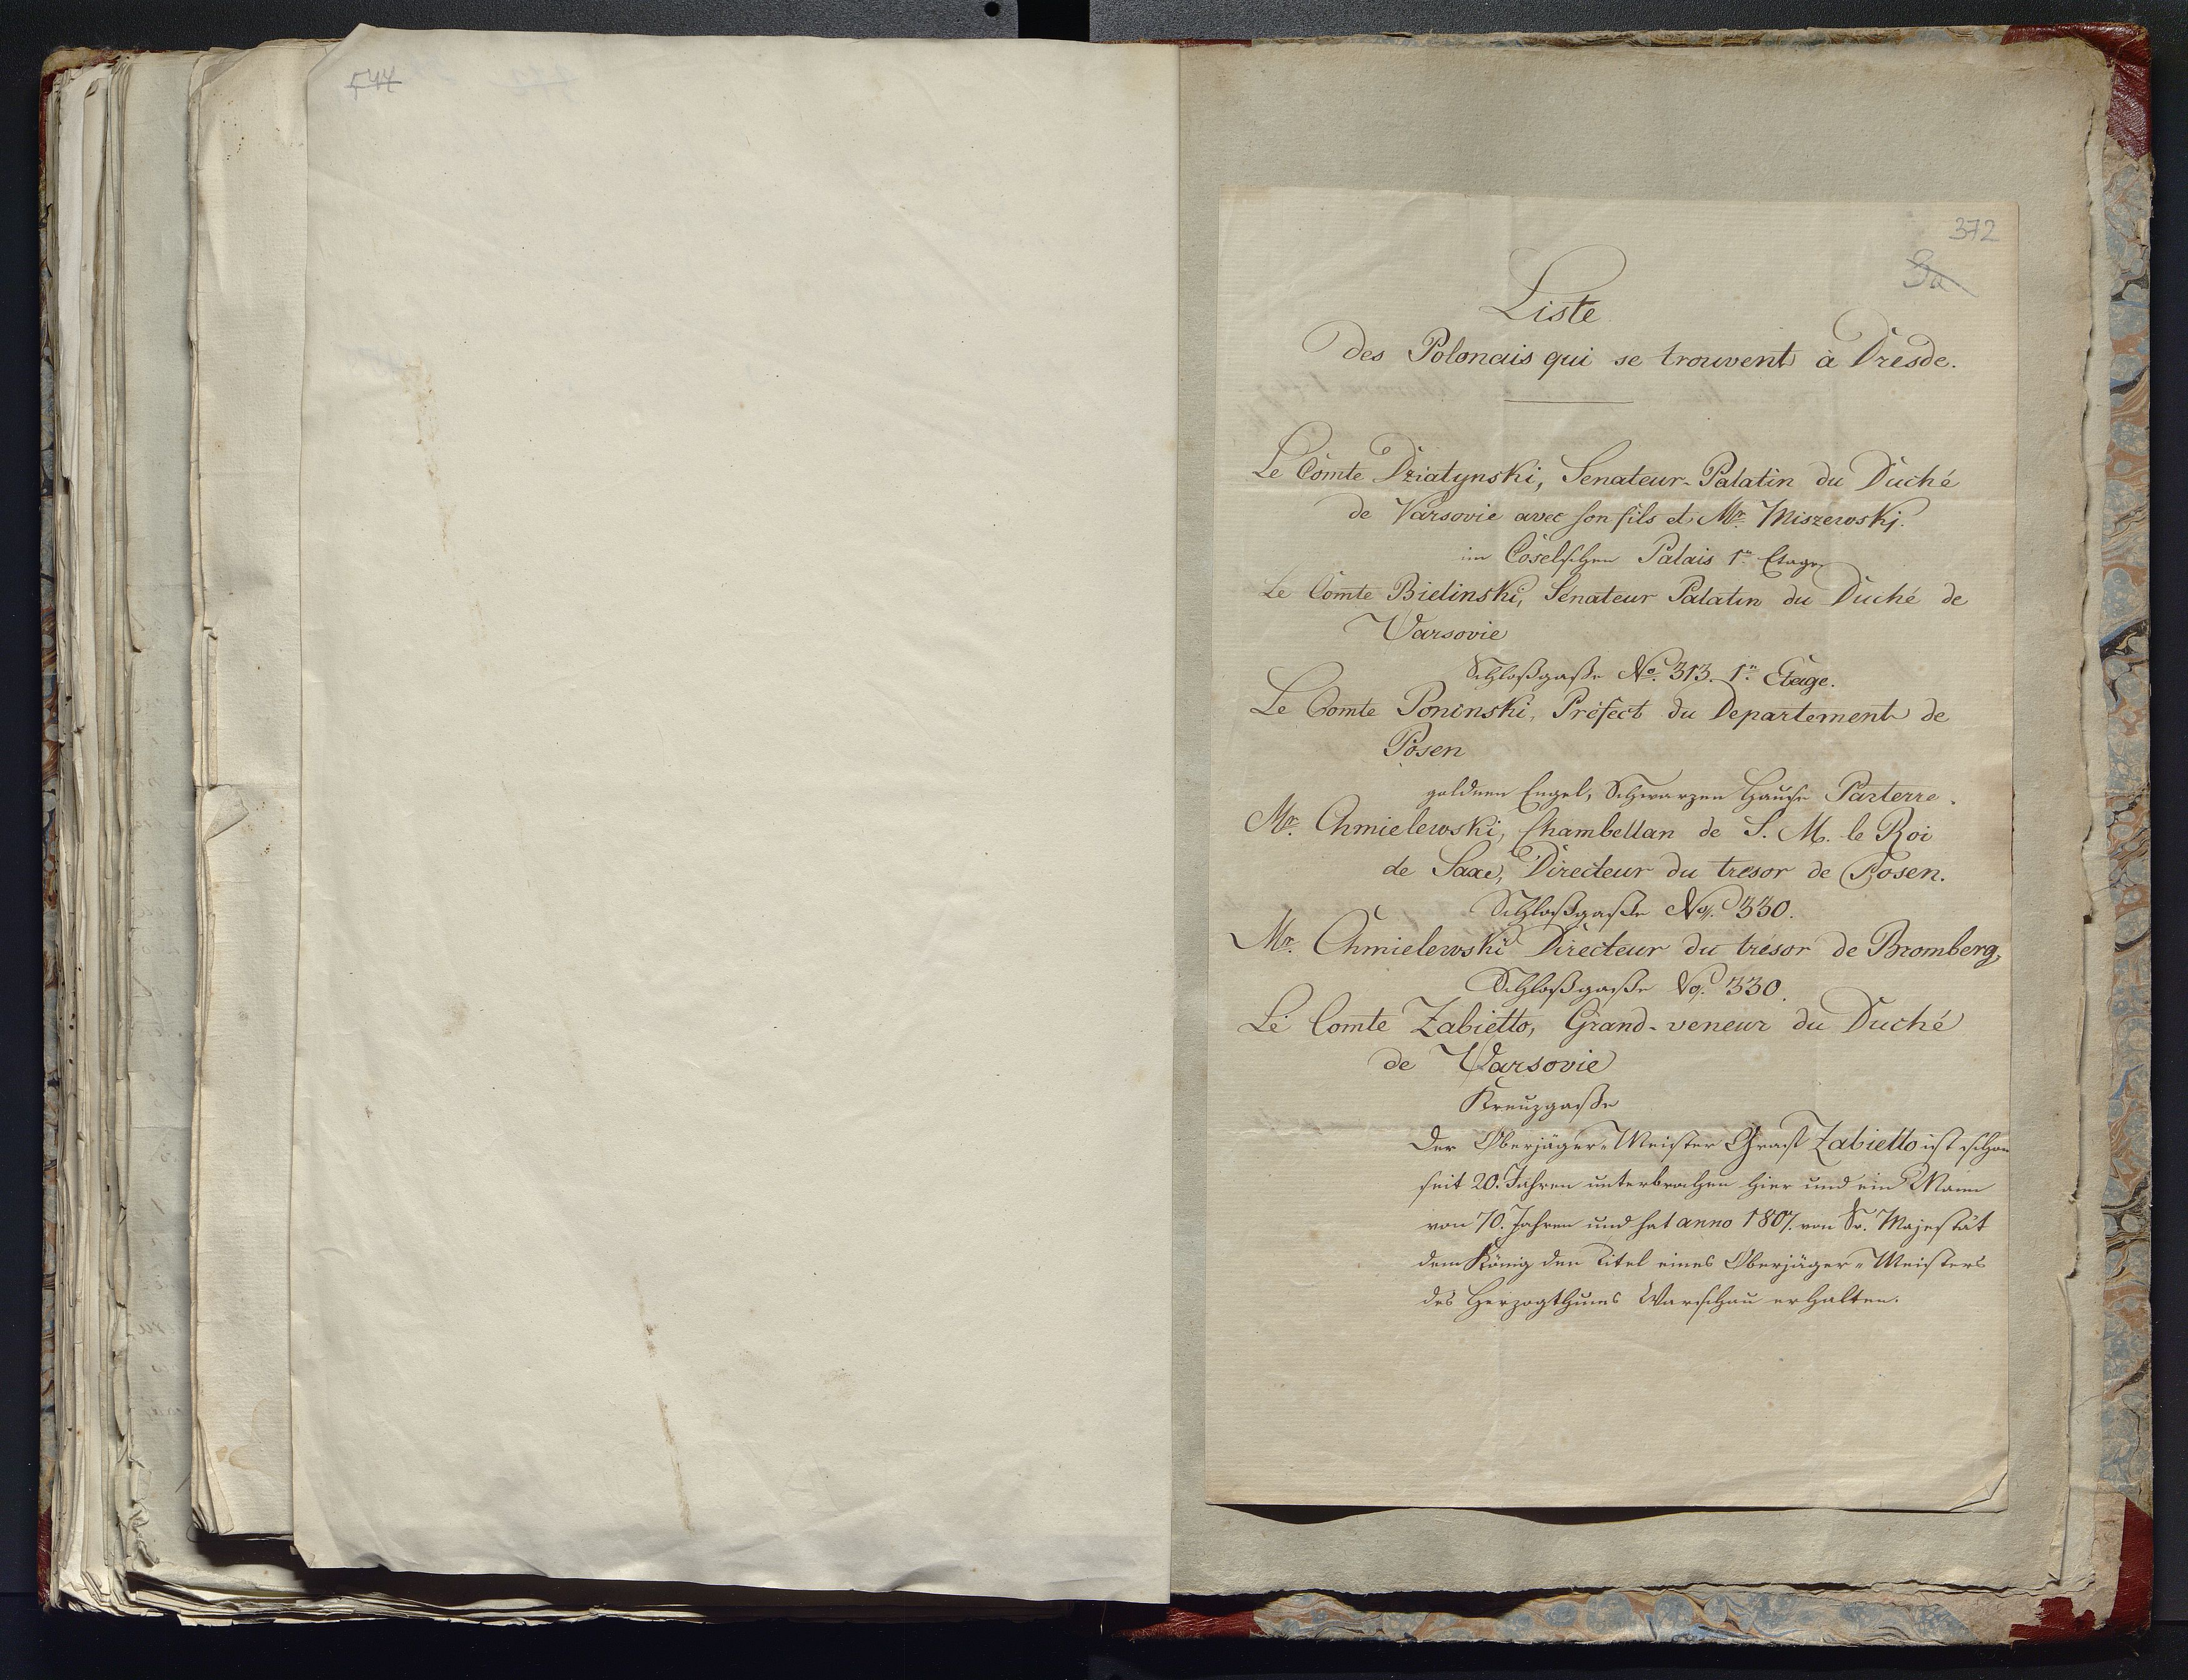 544
372
Liste
des Polonais qui se trouvent à Dresde.
Le Comte Dziatynski, Senateur-Palatin du Duché
de Varsovie avec son fils et Mr. Miszewskj.
im Coselschen Palais 1n Etage
Le Comte Bielinski, Sénateur Palatin du Duché de
Varsovie
Schloßgaße No. 313. 1n Etage.
Le Comte Poninski, Préfect du Departement de
Posen
goldnen Engel, Schwarzen Hause Parterre.
Mr. Chmielewski, Chambellan de S. M. le Roi
de Saxe, Directeur du tresor de Posen.
Schloßgaße No. 330.
Mr. Chmielewski Directeur du trésor de Bromberg,
Schloßgaße No. 330.
Le Comte Zabietto, Grand-veneur du Duché
de Varsovie
Kreuzgaße
Der Oberjäger-Meister Graf Zabietto ist schon
seit 20. Jahren unterbrochen hier und ein Mann
von 70. Jahren und hat anno 1807. von Sr. Majestät
dem König den Titel eines Oberjäger-Meisters
des Herzogthums Warschau erhalten.